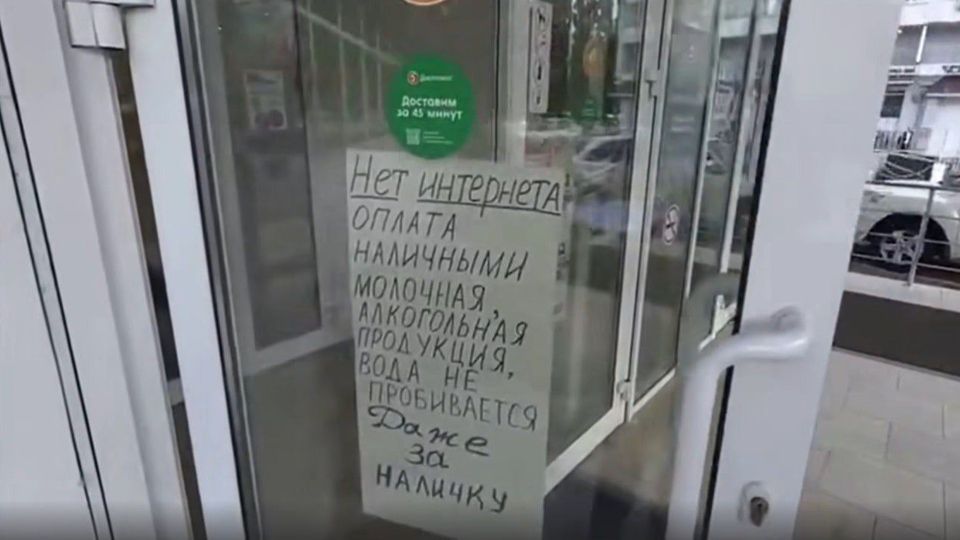 Доставим
за 45 минут
Нет интернета
ОПЛАТА
НАЛИЧНЫМИ
МОЛОЧНАЯ,
АЛКОГОЛЬНАЯ
ПРОДУКЦИЯ,
ВОДА НЕ
ПРОБИВАЕТСЯ
Даже
за
НАЛИЧКУ